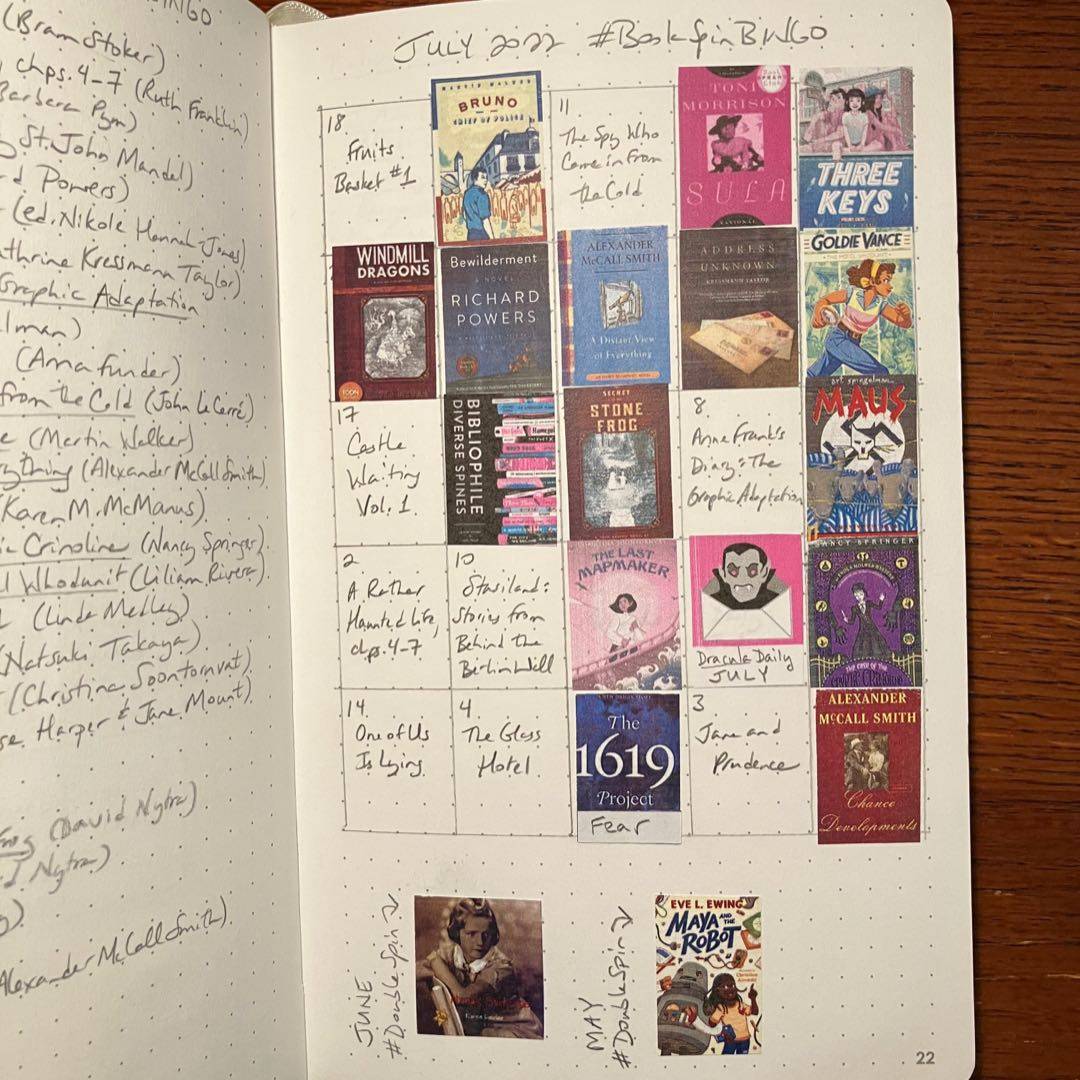 BINGO
(Bram Stoker)
chps. 4-7 (Ruth Franklin)
Barbara Pym)
St. John Mandel)
Powers)
(ed. Nikole Hannah-Jones)
Kathrine Kressmann Taylor)
Graphic Adaptation
(Anna Funder)
from the Cold (John Le Carré)
(Martin Walker)
(Alexander McCall Smith)
(Karen M. McManus)
Crinoline (Nancy Springer)
Whodunit (Lilliam Rivera)
(Linda Medley)
(Natsuki Takaya)
(Christina Soontornvat)
Harper & Jane Mount)
Frog (David Nytra)
Nytra)
Alexander McCall Smith)
JULY 2022 #BookSpinBINGO
18
Fruits
Basket #1
MARTIN WALKER
BRUNO
CHIEF OF POLICE
11
The Spy Who
Came in from
the Cold
TONI
MORRISON
SULA
NATIONAL
THREE
KEYS
WINDMILL
DRAGONS
TOON
Bewilderment
A NOVEL
RICHARD
POWERS
ALEXANDER
McCALL SMITH
A Distant View
of Everything
ADDRESS
UNKNOWN
KRESSMANN TAYLOR
GOLDIE VANCE
17
Castle
Waiting
Vol. 1
BIBLIOPHILE
DIVERSE SPINES
SECRET
STONE
FROG
8
Anne Frank's
Diary: The
Graphic Adaptation
art spiegelman
MAUS
2
A Rather
Haunted Life,
chps. 4-7
10
Stasiland:
Stories from
Behind the
Berlin Wall
THE LAST
MAPMAKER
Dracula Daily
JULY
NANCY SPRINGER
THE CASE OF THE
14
One of Us
Is Lying
4
The Glass
Hotel
The
1619
Project
Fear
3
Jane and
Prudence
ALEXANDER
McCALL SMITH
Chance
Developments
JUNE
#DoubleSpin
MAY
#DoubleSpin
EVE L. EWING
MAYA AND THE
ROBOT
22